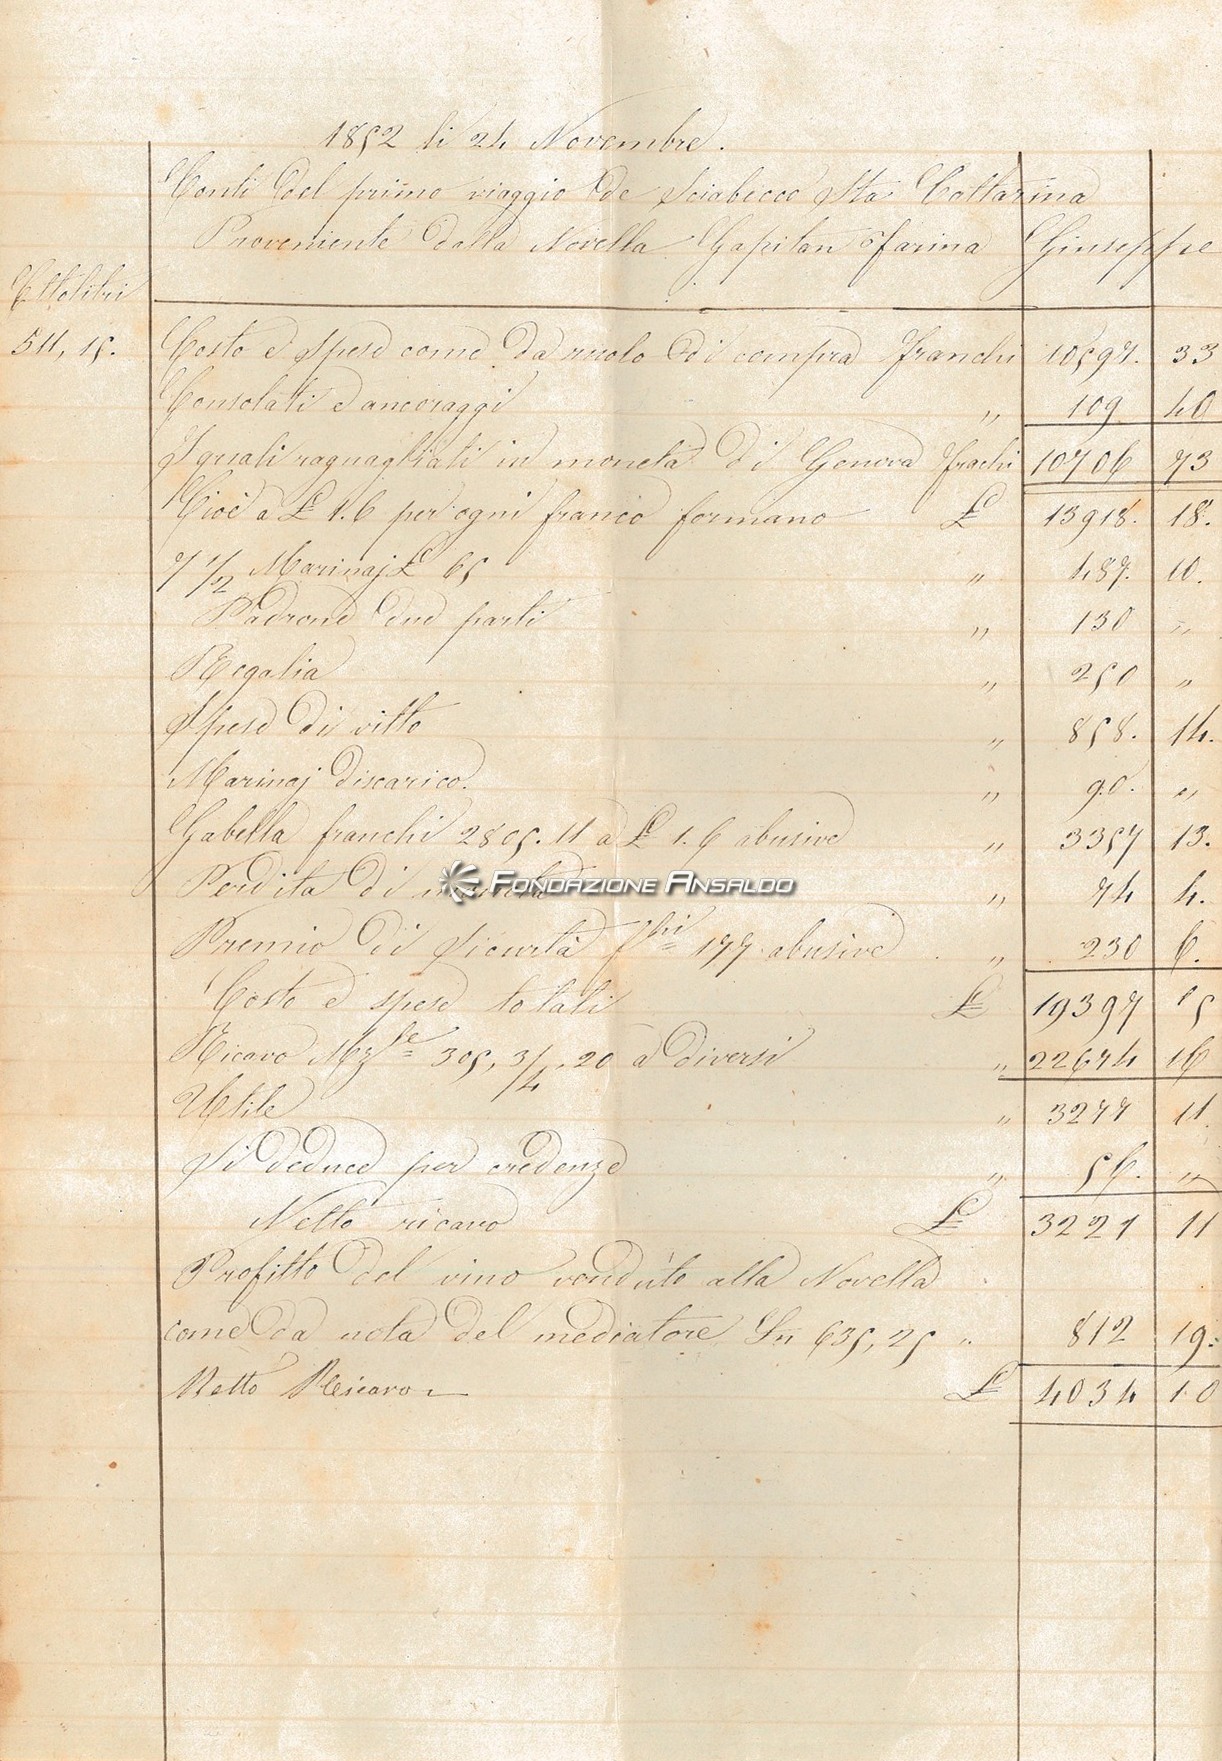 1852 li 24 Novembre.
Conti del primo viaggio de Sciabecco Sta Cattarina
Proveniente dalla Novella Capitan Farina Giuseppe
Ettolitri
511,15. Costo e spese come da ruolo di compra franchi 10597. 33
Consolati e ancoraggi " 109 40
I quali raguagliati in moneta di Genova frachi 10706 73
Cioè a £ 1.6 per ogni franco formano £ 13918. 18.
7 1/2 Marinaj £ 65 " 487. 10.
Padrone due parti " 130 "
Regalia " 250 "
Spese di vitto " 858. 14.
Marinaj discarico. " 90. "
Gabella franchi 2805.11 a £ 1.6 abusive " 3357 13.
Perdita di moneta " 74 4.
FONDAZIONE ANSALDO
Premio di sicurtà fchi 177 abusive " 230 6.
Costo e spese totali £ 19397 15
Ricavo Mzle 305, 3/4, 20 a diversi " 22674 16
Utile " 3277 11
Si deduce per credenze " 56. "
Netto ricavo £ 3221 11
Profitto del vino venduto alla Novella
come da nota del mediatore Ln 635,25 " 812 19.
Netto Ricavo £ 4034 10